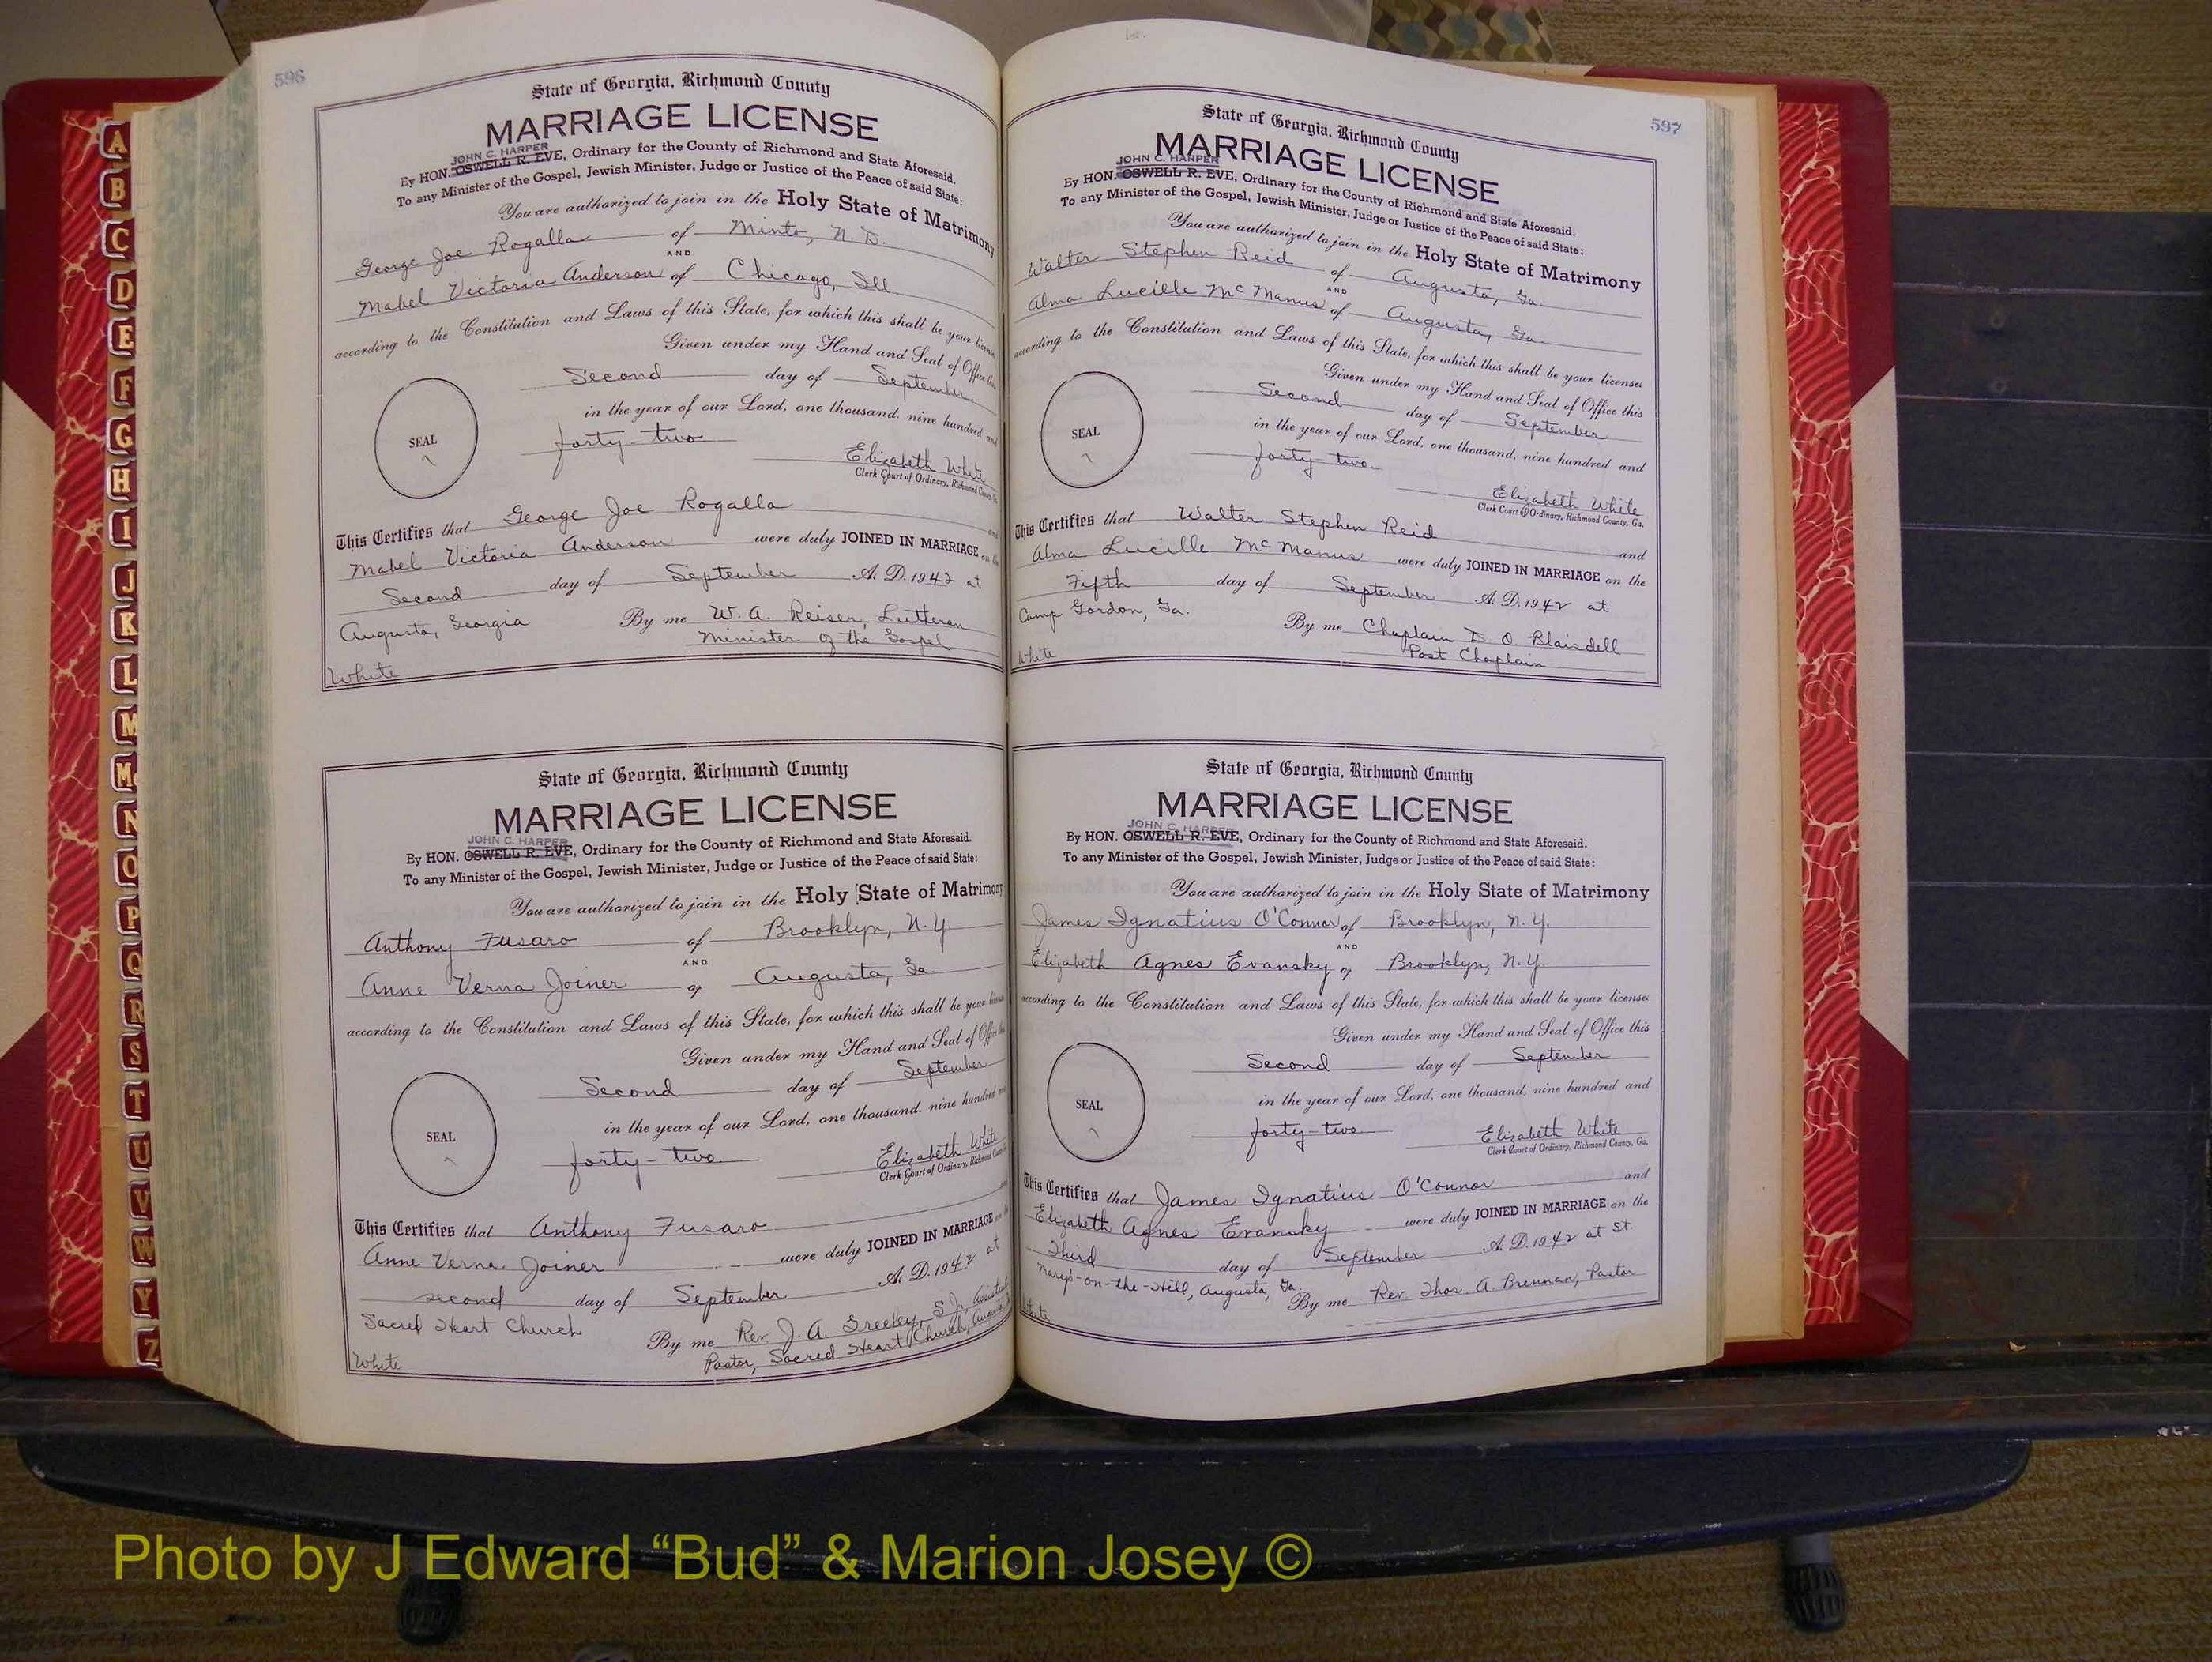 596
State of Georgia, Richmond County
MARRIAGE LICENSE
JOHN C. HARPER
By HON. OSWELL R. EVE, Ordinary for the County of Richmond and State Aforesaid.
To any Minister of the Gospel, Jewish Minister, Judge or Justice of the Peace of said State:
You are authorized to join in the Holy State of Matrimony
George Joe Rogalla of Minto, N. D.
AND
Mabel Victoria Anderson of Chicago, Ill.
according to the Constitution and Laws of this State, for which this shall be your license
Given under my Hand and Seal of Office this
Second day of September
in the year of our Lord, one thousand, nine hundred and
forty-two
SEAL
Elizabeth White
Clerk Court of Ordinary, Richmond County, Ga.
This Certifies that George Joe Rogalla and
Mabel Victoria Anderson were duly JOINED IN MARRIAGE on the
Second day of September A. D. 1942 at
Augusta, Georgia By me W. A. Reiser, Lutheran
Minister of the Gospel
White
State of Georgia, Richmond County
MARRIAGE LICENSE
JOHN C. HARPER
By HON. OSWELL R. EVE, Ordinary for the County of Richmond and State Aforesaid.
To any Minister of the Gospel, Jewish Minister, Judge or Justice of the Peace of said State:
You are authorized to join in the Holy State of Matrimony
Anthony Fusaro of Brooklyn, N. Y.
AND
Anne Verna Joiner of Augusta, Ga.
according to the Constitution and Laws of this State, for which this shall be your license
Given under my Hand and Seal of Office this
Second day of September
in the year of our Lord, one thousand, nine hundred and
forty-two
SEAL
Elizabeth White
Clerk Court of Ordinary, Richmond County
This Certifies that Anthony Fusaro
Anne Verna Joiner were duly JOINED IN MARRIAGE on the
second day of September A. D. 1942 at
Sacred Heart Church By me Rev. J. A. Greeley, S. J., Assistant
Pastor, Sacred Heart Church,
White
597
State of Georgia, Richmond County
MARRIAGE LICENSE
JOHN C. HARPER
By HON. OSWELL R. EVE, Ordinary for the County of Richmond and State Aforesaid.
To any Minister of the Gospel, Jewish Minister, Judge or Justice of the Peace of said State:
You are authorized to join in the Holy State of Matrimony
Walter Stephen Reid of Augusta, Ga.
AND
Alma Lucille McManus of Augusta, Ga.
according to the Constitution and Laws of this State, for which this shall be your licenses
Given under my Hand and Seal of Office this
Second day of September
in the year of our Lord, one thousand, nine hundred and
forty two
SEAL
Elizabeth White
Clerk Court of Ordinary, Richmond County, Ga.
This Certifies that Walter Stephen Reid and
Alma Lucille McManus were duly JOINED IN MARRIAGE on the
Fifth day of September A. D. 1942 at
Camp Gordon, Ga. By me Chaplain D. O. Blaisdell
Post Chaplain
White
State of Georgia, Richmond County
MARRIAGE LICENSE
JOHN C. HARPER
By HON. OSWELL R. EVE, Ordinary for the County of Richmond and State Aforesaid.
To any Minister of the Gospel, Jewish Minister, Judge or Justice of the Peace of said State:
You are authorized to join in the Holy State of Matrimony
James Ignatius O'Connor of Brooklyn, N. Y.
AND
Elizabeth Agnes Evansky of Brooklyn, N. Y.
according to the Constitution and Laws of this State, for which this shall be your licenses
Given under my Hand and Seal of Office this
Second day of September
in the year of our Lord, one thousand, nine hundred and
forty-two
SEAL
Elizabeth White
Clerk Court of Ordinary, Richmond County, Ga.
This Certifies that James Ignatius O'Connor and
Elizabeth Agnes Evansky were duly JOINED IN MARRIAGE on the
Third day of September A. D. 1942 at St.
Mary's-on-the-Hill, Augusta, Ga. By me Rev. Thos. A. Brennan, Pastor
White
A
B
C
D
E
F
G
H
I
J
K
L
M
Mc
N
O
P
Q
R
S
T
U
V
W
Y
Z
Photo by J Edward “Bud” & Marion Josey ©